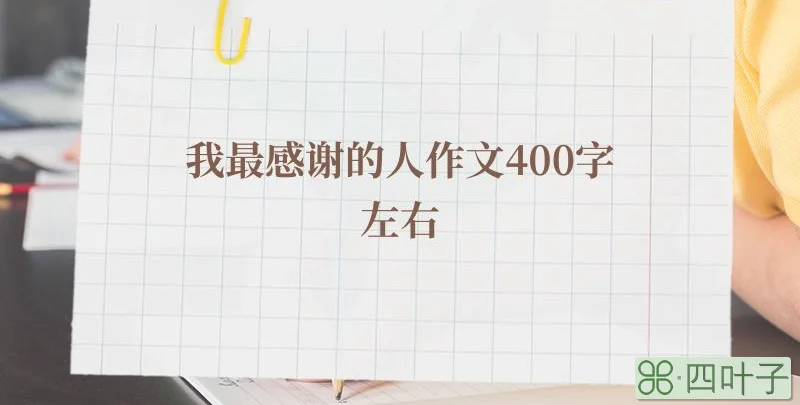 我最感谢的人作文400字
左右
四叶子